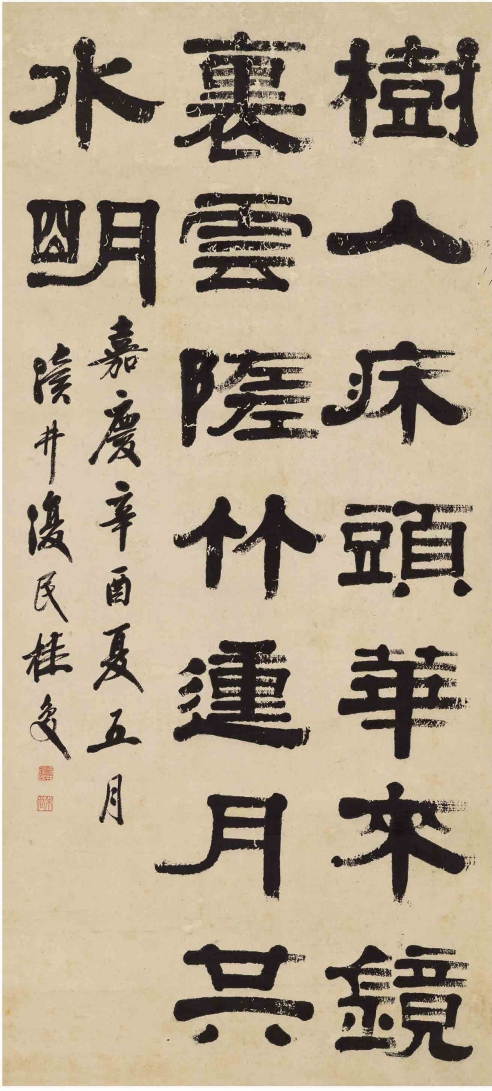 樹入床頭華來鏡
裏雲隨竹動月共
水明
嘉慶辛酉夏五月
瀆井復民桂馥